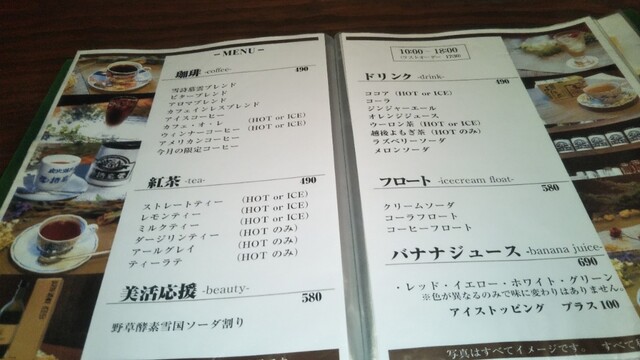 －MENU－
珈琲 -coffee- 490
雪詩慕雲ブレンド
ビターブレンド
アロマブレンド
カフェインレスブレンド
アイスコーヒー
カフェ・オ・レ (HOT or ICE)
ウィンナーコーヒー (HOT or ICE)
アメリカンコーヒー
今月の限定コーヒー
紅茶 -tea- 490
ストレートティー (HOT or ICE)
レモンティー (HOT or ICE)
ミルクティー (HOT or ICE)
ダージリンティー (HOT のみ)
アールグレイ (HOT のみ)
ティーラテ (HOT のみ)
美活応援 -beauty- 580
野草酵素雪国ソーダ割り
10:00－18:00
ラストオーダー 17:30
ドリンク -drink- 490
ココア (HOT or ICE)
コーラ
ジンジャーエール
オレンジジュース
ウーロン茶 (HOT or ICE)
越後よもぎ茶 (HOT のみ)
ラズベリーソーダ
メロンソーダ
フロート -icecream float- 580
クリームソーダ
コーラフロート
コーヒーフロート
バナナジュース -banana juice- 690
・レッド・イエロー・ホワイト・グリーン
※色が異なるのみで味に変わりはありません。
アイストッピング プラス100
写真はすべてイメージです。